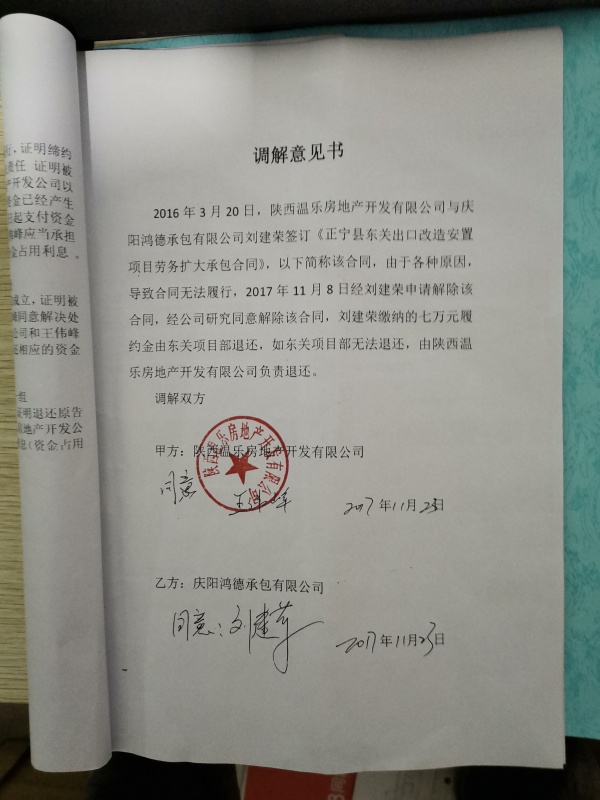 调解意见书
2016 年 3 月 20 日，陕西温乐房地产开发有限公司与庆
阳鸿德承包有限公司刘建荣签订《正宁县东关出口改造安置
项目劳务扩大承包合同》，以下简称该合同，由于各种原因，
导致合同无法履行，2017 年 11 月 8 日经刘建荣申请解除该
合同，经公司研究同意解除该合同，刘建荣缴纳的七万元履
约金由东关项目部退还，如东关项目部无法退还，由陕西温
乐房地产开发有限公司负责退还。
调解双方
甲方：陕西温乐房地产开发有限公司
陕西温乐房地产开发有限公司
同意 王伟峰 2017 年 11 月 23 日
乙方：庆阳鸿德承包有限公司
同意：刘建荣 2017 年 11 月 23 日
，证明缔约
责任 证明被
产开发公司以
金已经产生
起支付资金
伟峰应当承担
金占用利息。
成立，证明被
同意解决处
公司和王伟峰
相应的资金
组
证明退还原告
房地产开发公
（资金占用